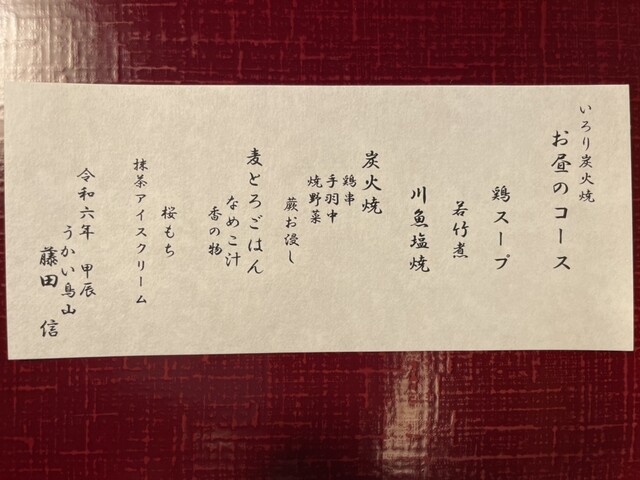 いろり炭火焼
お昼のコース
鶏スープ
若竹煮
川魚塩焼
炭火焼
鶏串
手羽中
焼野菜
蕨お浸し
麦とろごはん
なめこ汁
香の物
桜もち
抹茶アイスクリーム
令和六年 甲辰
うかい鳥山
藤田 信